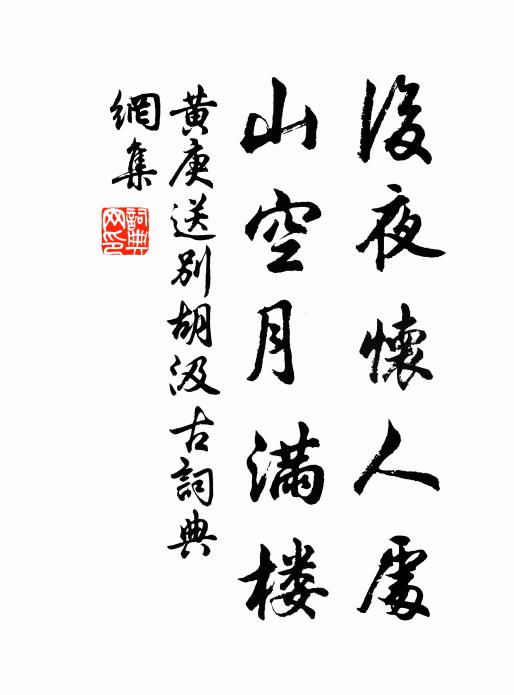 後夜懷人處
山空月滿楼
黄庚送别胡汲古詞典
網集
詞典網印